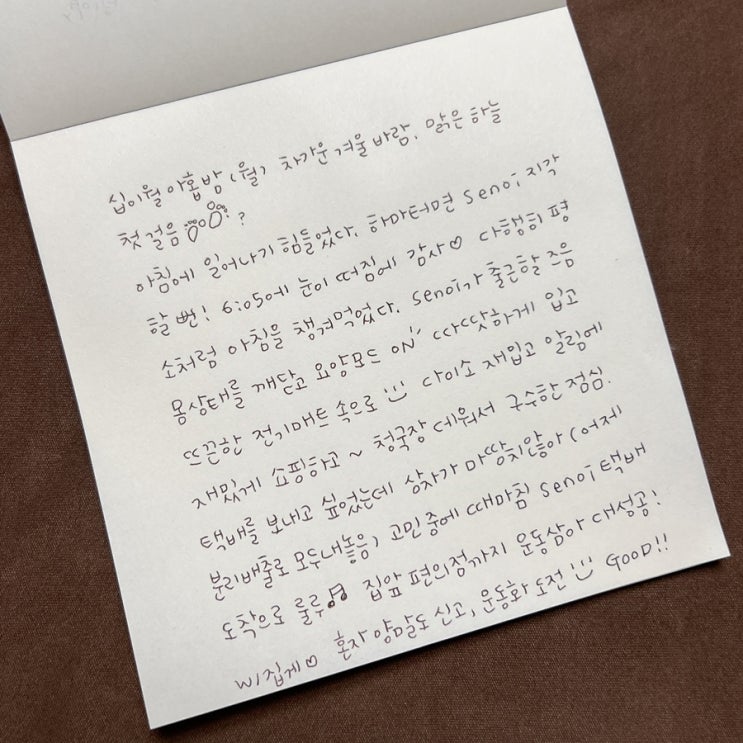 십이월 아홉밤 (월) 차가운 겨울 바람. 맑은 하늘
첫 걸음 ?
아침에 일어나기 힘들었다. 하마터면 Senoi 지각
할 뻔! 6:05에 눈이 떠짐에 감사♡ 다행히 평
소처럼 아침을 챙겨먹었다. Senoi가 출근할 즈음
몸상태를 깨닫고 요양모드 ON'' 따따땃하게 입고
뜨끈한 전기매트 속으로 다이소 재입고 알림에
재밌게 쇼핑하고 ~ 청국장 데워서 구수한 점심.
택배를 보내고 싶었는데 상자가 마땅치않아 (어제
분리배출로 모두내놓음) 고민 중에 때마침 Senoi 택배
도착으로 룰루♬ 집앞 편의점까지 운동삼아 대성공!
W/집게♡ 혼자 양말도 신고, 운동화 도전 GOOD!!